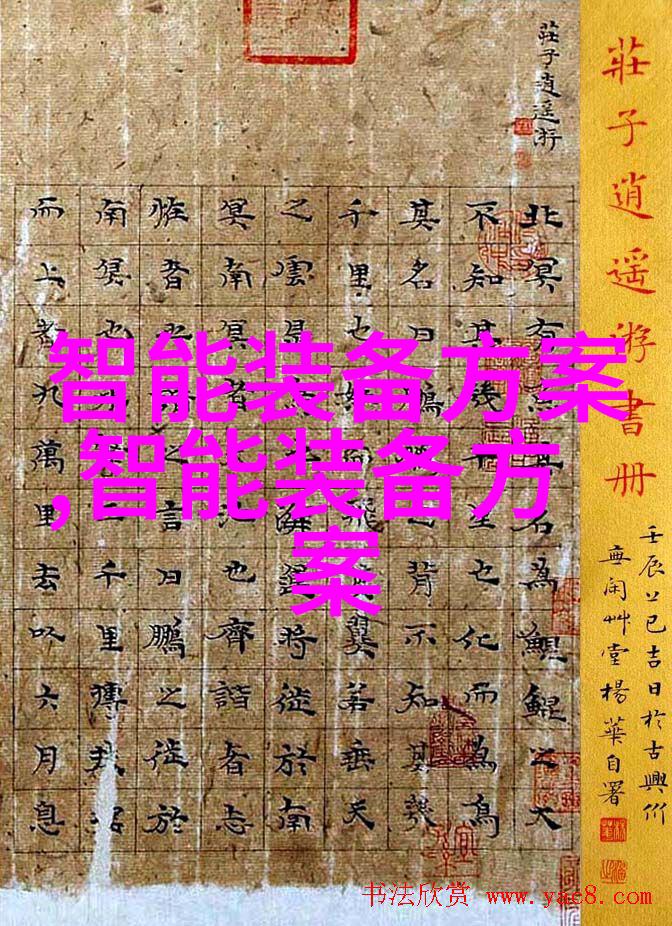 莊子逍遥游書册
壬辰上巳吉日於古興竹
無闲艸堂楊華自署
莊子逍遥游
北冥有魚其名為鯤鯤之大
不知其幾千里也化而為鳥
其名曰鵬鵬之背不知其幾
千里也怒而飛其翼若垂天
之雲是鳥也海運將徙於南
冥南冥者天池也齊諧者志
怪者也諧之言曰鵬之徙於
南冥也水擊三千里摶扶搖
而上者九萬里去以六月息
智能装备方案
,智能装备方
案
书法欣赏 www.yac8.com